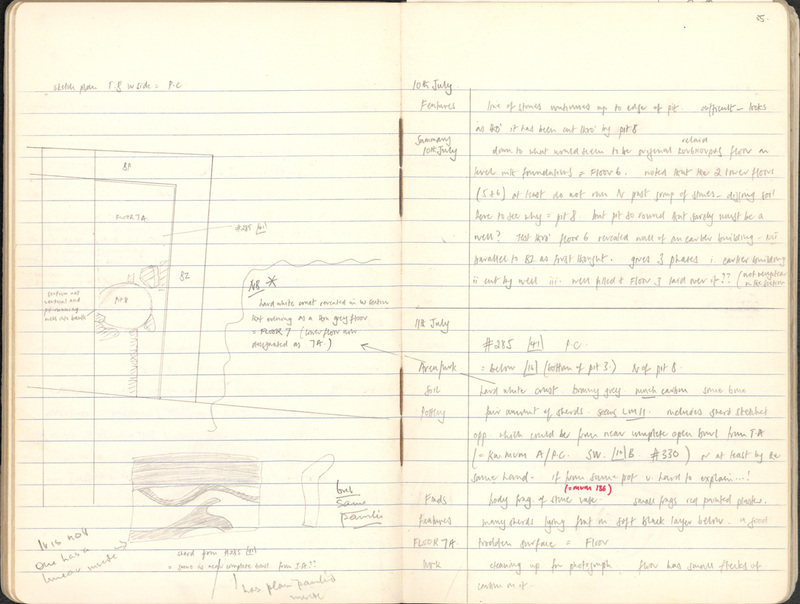 sketch plan S.8 W side = P.C
82
FLOOR 7A
#285 [41]
82
section not
vertical and
pit running
well into baulk
Pit 8
NB *
hard white crust revealed in W section
last evening as a thin grey floor
= FLOOR 7 (lower floor now
designated as 7A.)
but
same
painter
It is not
one has a
linear
sherd from #285 [41]
= same as near complete bowl from JA??
! has plain painted
inside
85.
10th July
Features line of stones continues up to edge of pit difficult - looks
as tho' it has been cut thro' by pit 8
Summary
10th July
down to what would seem to be original floor on
level with foundations = FLOOR 6. noted that the 2 lower floors
(5+6) at least do not run N past group of stones - digging soil
here to see why = pit 8 but pit so round that surely must be a
well? Test thro' floor 6 revealed wall of an earlier building - not
parallel to 82 as first thought. gives 3 phases i. earlier building
ii cut by well iii. well filled & Floor 3 laid over it?? (not
in the section
11th July
#285 [41] P.C.
Area/mk = below [16] (bottom of pit 3.) N of pit 8.
Soil hard white crust browny grey. much carbon some bone
Pottery fair amount of sherds. seems LM II. includes sherd sketched
opp. which could be from near complete open bowl from JA
(= Kn museum A/P.C. SW. [10] B #330) or at least by the
same hand. if from same pot v. hard to explain...!
Finds body frag. of stone vase. small frags red painted plaster.
Features many sherds lying flat in soft black layer below. a good
FLOOR 7A. trodden surface = Floor
Work cleaning up for photograph floor has small flecks of
carbon in it.